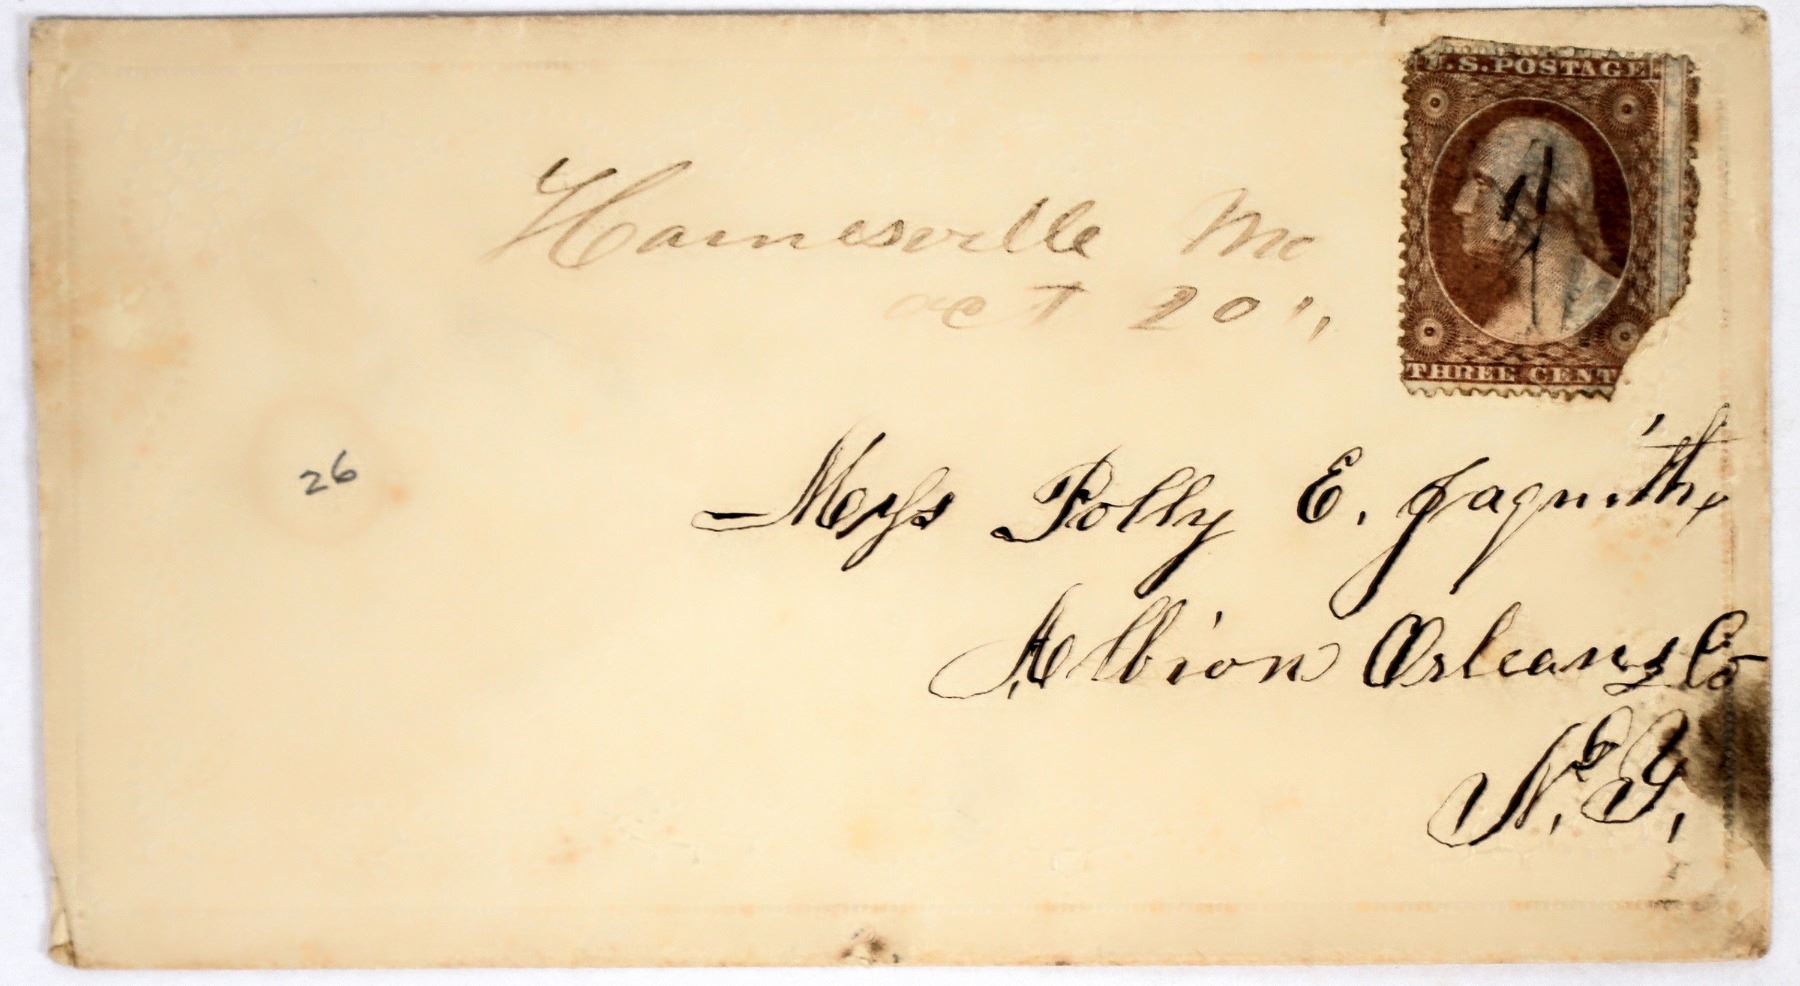 U.S. POSTAGE
THREE CENT
Hainesville Mo
oct 20
26
Miss Polly E. Jaquith,
Albion Orleans Co
N. Y.